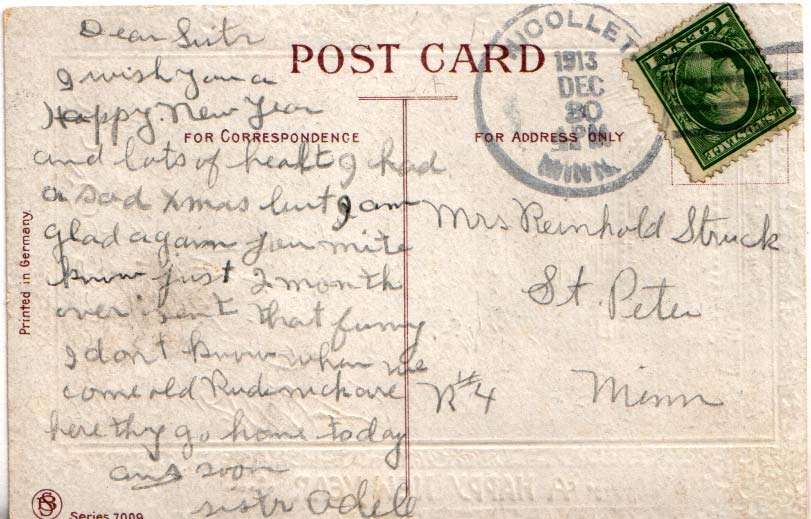 Dear Sistr
I wish you a
Happy New Year
and lots of healt I had
a sad Xmas but I am
glad again you mite
know just 2 month
over isent that funny
I don't know when we
come old
here thy go home today
ans soon
sistr Adell
POST CARD
FOR CORRESPONDENCE
FOR ADDRESS ONLY
NICOLLET
1913
DEC
30
PM
MINN.
U.S. POSTAGE
1 CENT 1
Mrs Reinhold Struck
St. Peter
R#4 Minn
Printed in Germany.
Series 7009
A HAPPY NEW YEAR